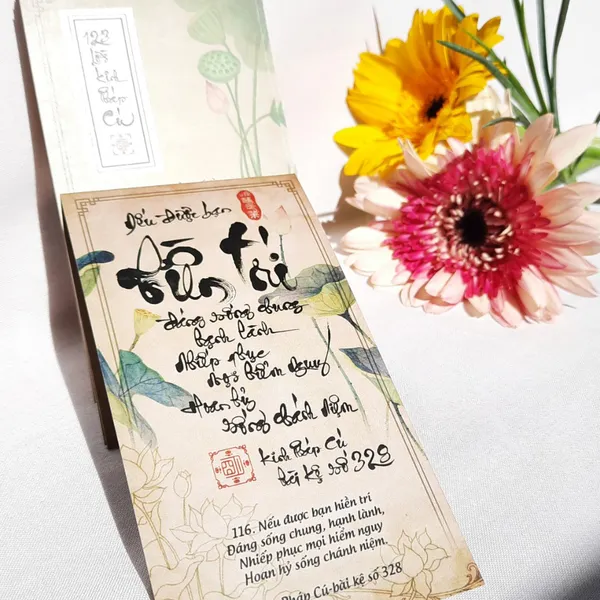 122
bài
Kinh
Pháp
Cú
Nếu được bạn
Hiền Trí
Đáng sống chung
hạnh lành
Nhiếp phục
mọi hiểm nguy
Hoan hỷ
sống chánh niệm
Kinh Pháp Cú
bài kệ số 328
116. Nếu được bạn hiền trí
Đáng sống chung, hạnh lành,
Nhiếp phục mọi hiểm nguy
Hoan hỷ sống chánh niệm.
Pháp Cú-bài kệ số 328